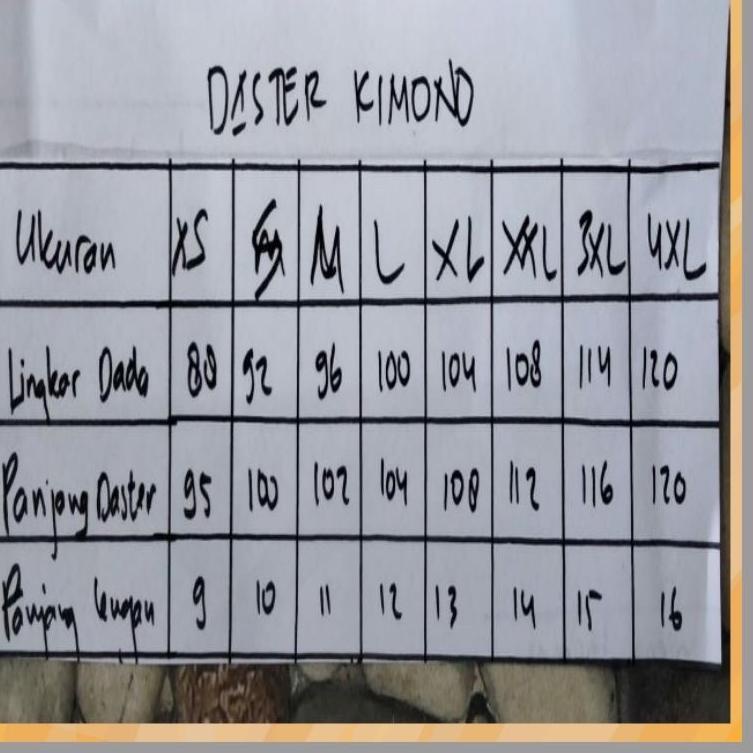 DASTER KIMONO
Ukuran XS M L XL XXL 3XL 4XL
Lingkar Dada 88 92 96 100 104 108 114 120
Panjang Daster 95 100 102 104 108 112 116 120
Panjang Lengan 9 10 11 12 13 14 15 16